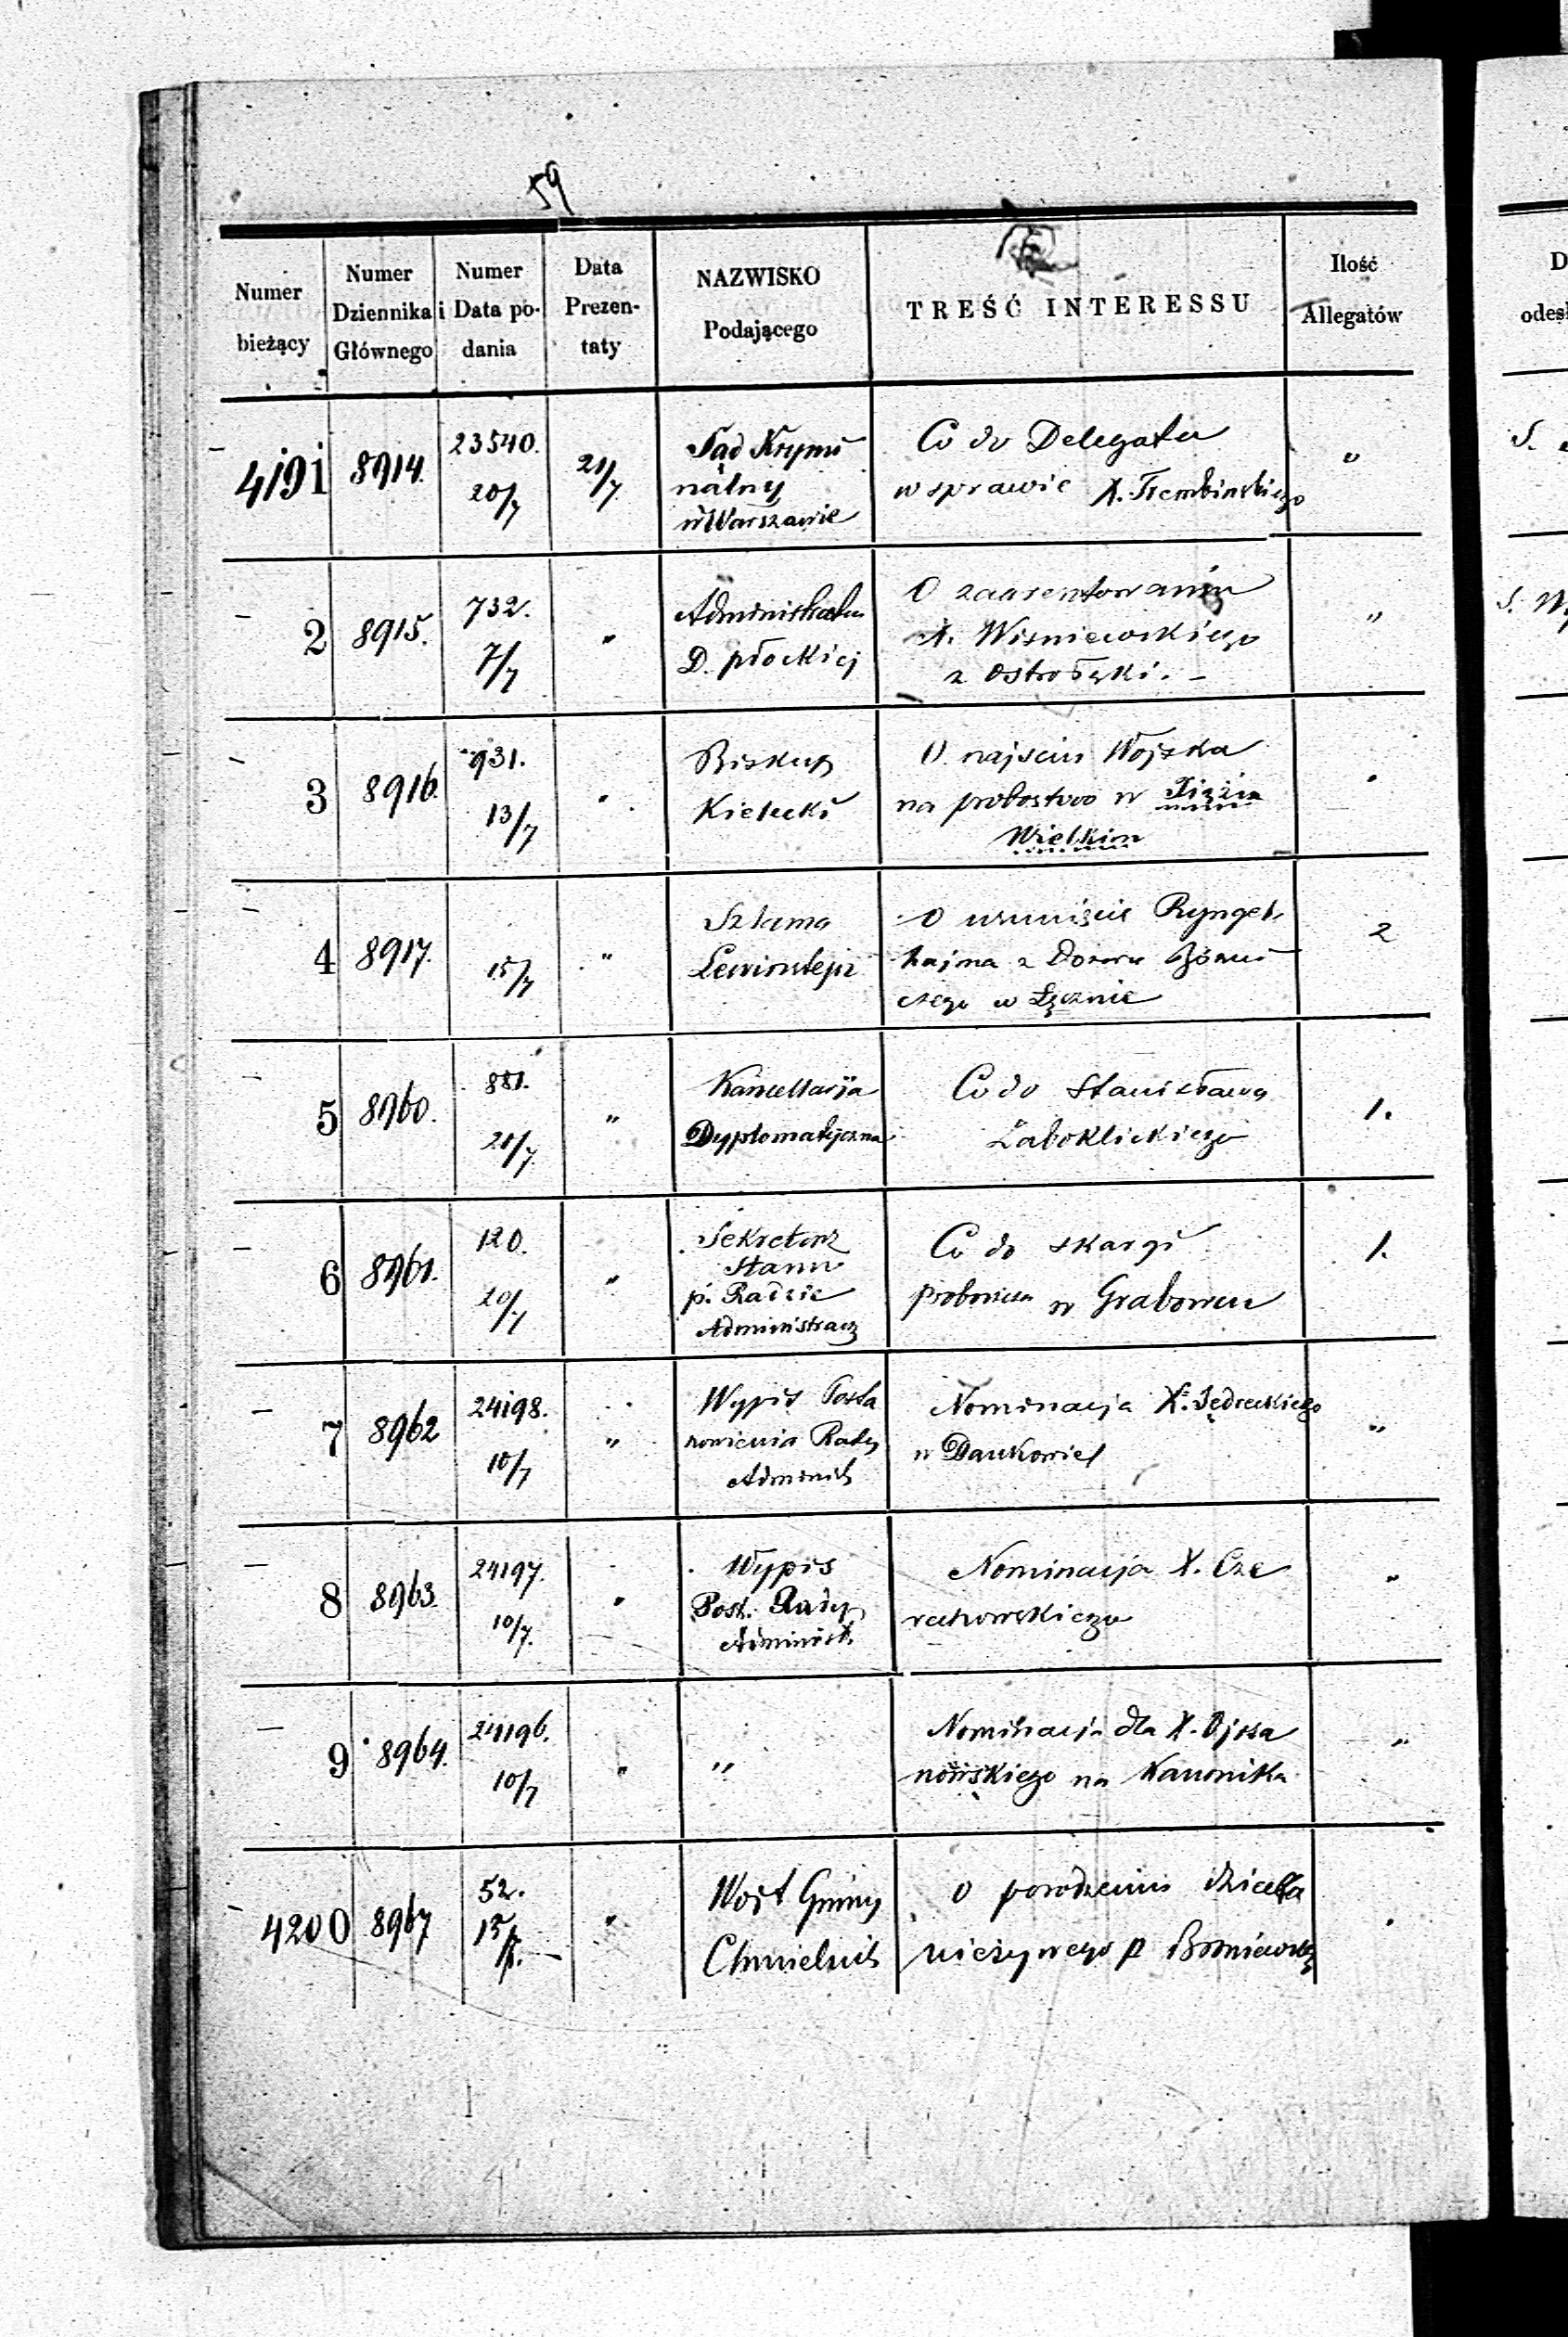 59
Numer bieżący | Numer Dziennika Głównego | Numer i Data podania | Data Prezentaty | NAZWISKO Podającego | TREŚĆ INTERESSU | Ilość Allegatów
4191 8914. 23540. 20/7 21/7
Sąd Krymi
nalny
w Warszawie
Co do Delegata
w sprawie X. Trembinskiego
"
2 8915. 732. 7/7 "
Administrator
D. płockiej
O zaaresztowaniu
X. Wisniewskiego
z Ostrołęki. -
"
3 8916. 931. 13/7 "
Biskup
Kielecki
O najsciu Wojska
na probostwo w
Wielkim
"
4 8917. 15/7 "
Szlama
Lewinstejn
O usunięcie Ryngel
hajma z Dozoru Bóżni
czego w Łęcznie
2
5 8960. 881. 20/7 "
Kancellarija
Dyplomatyczna
Co do Stanisława
Zaboklickiego
1.
6 8961. 120. 20/7 "
Sekretarz
Stanu
p. Radzie
Administracy
Co do skargi
proboszcza w Grabowcu
1.
7 8962 24198. 10/7 "
Wypis Posta
nowienia Rady
Administ
Nominacja X. Jędreckiego
w Dankowie
"
8 8963. 24197. 10/7. "
Wypis
Post. Rady
Administ.
Nominacja X. Cze
rechowskiego
"
9 8964. 24196. 10/7 "
"
Nominacja dla X. Ojrza
nowskiego na Kanonika
"
4200 8967 52. "
Wojt Gminy
Chmielnik
O porodzeniu dziecka
nieżywego p
D
odes
S.
S.